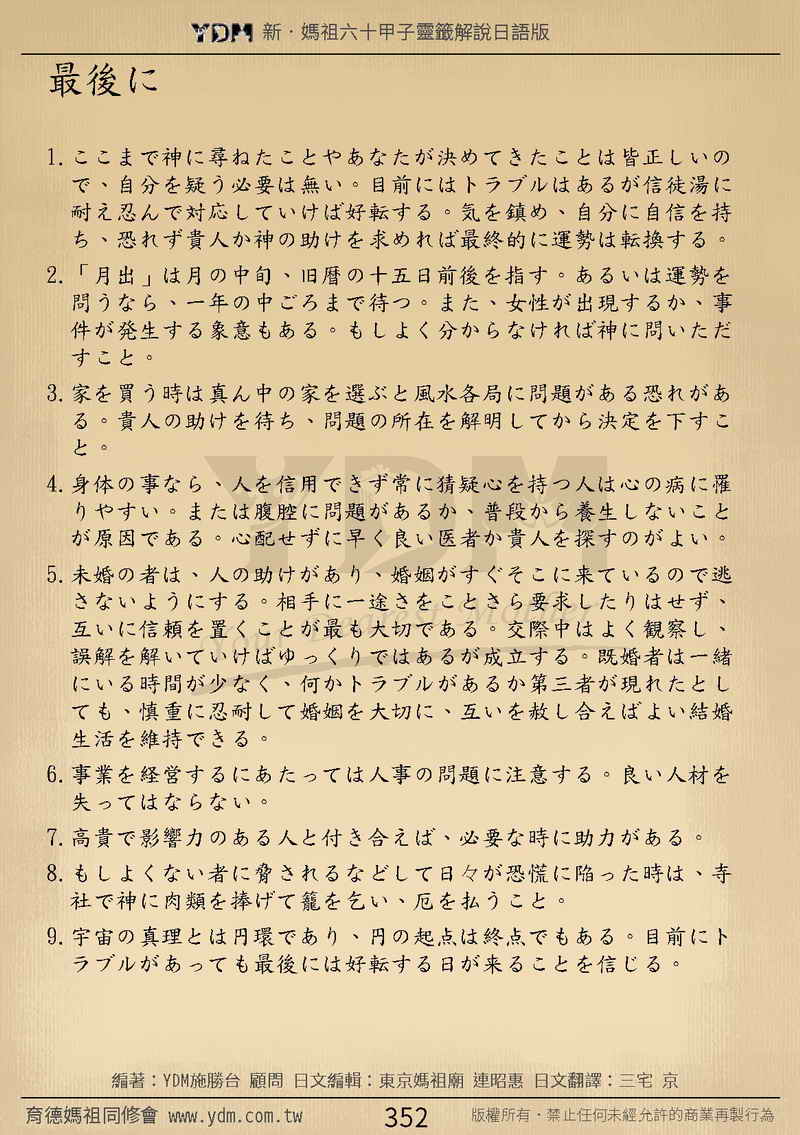 YDM 新・媽祖六十甲子靈籤解說日語版
最後に
1. ここまで神に尋ねたことやあなたが決めてきたことは皆正しいの
で、自分を疑う必要は無い。目前にはトラブルはあるが信徒湯に
耐え忍んで対応していけば好転する。気を鎮め、自分に自信を持
ち、恐れず貴人か神の助けを求めれば最終的に運勢は転換する。
2. 「月出」は月の中旬、旧暦の十五日前後を指す。あるいは運勢を
問うなら、一年の中ごろまで待つ。また、女性が出現するか、事
件が発生する象意もある。もしよく分からなければ神に問いただ
すこと。
3. 家を買う時は真ん中の家を選ぶと風水各局に問題がある恐れがあ
る。貴人の助けを待ち、問題の所在を解明してから決定を下すこ
と。
4. 身体の事なら、人を信用できず常に猜疑心を持つ人は心の病に罹
りやすい。または腹腔に問題があるか、普段から養生しないこと
が原因である。心配せずに早く良い医者か貴人を探すのがよい。
5. 未婚の者は、人の助けがあり、婚姻がすぐそこに来ているので逃
さないようにする。相手に一途さをことさら要求したりはせず、
互いに信頼を置くことが最も大切である。交際中はよく観察し、
誤解を解いていけばゆっくりではあるが成立する。既婚者は一緒
にいる時間が少なく、何かトラブルがあるか第三者が現れたとし
ても、慎重に忍耐して婚姻を大切に、互いを赦し合えばよい結婚
生活を維持できる。
6. 事業を経営するにあたっては人事の問題に注意する。良い人材を
失ってはならない。
7. 高貴で影響力のある人と付き合えば、必要な時に助力がある。
8. もしよくない者に脅されるなどして日々が恐慌に陥った時は、寺
社で神に肉類を捧げて籠を乞い、厄を払うこと。
9. 宇宙の真理とは円環であり、円の起点は終点でもある。目前にト
ラブルがあっても最後には好転する日が来ることを信じる。
編著：YDM施勝台 顧問 日文編輯：東京媽祖廟 連昭惠 日文翻譯：三宅 京
育德媽祖同修會 www.ydm.com.tw 352 版權所有・禁止任何未經允許的商業再製行為